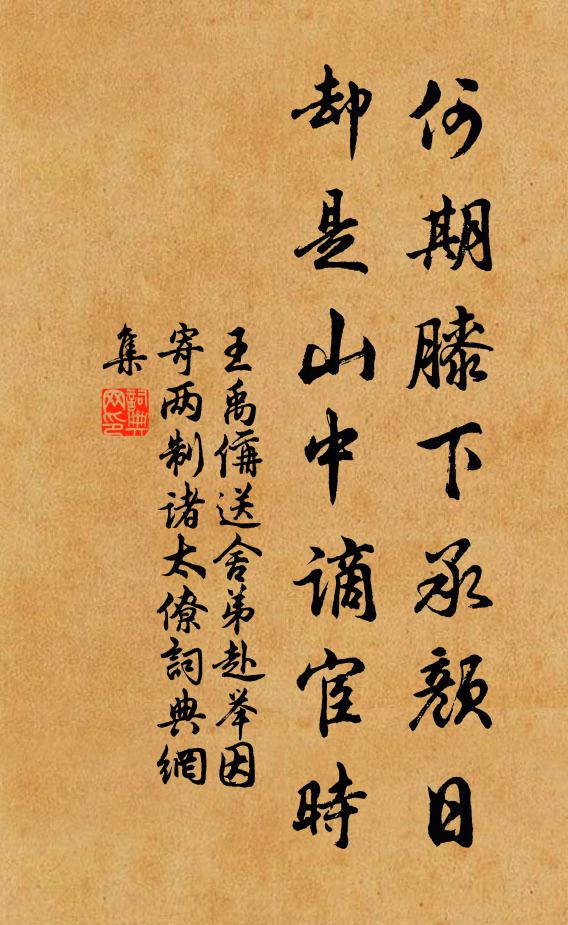 何期膝下承颜日
却是山中谪宦時
王禹偁送舍弟赴举因
寄两制诸太僚詞典網
集
詞典
网印